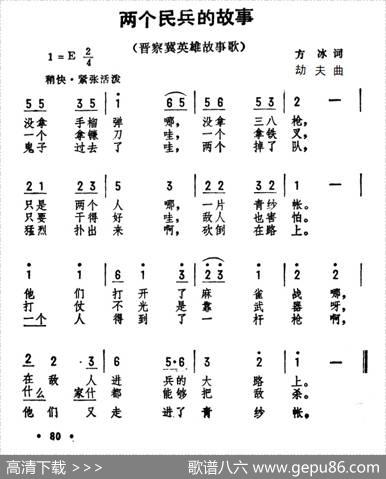 两个民兵的故事
(晋察冀英雄故事歌)
1=E 2/4
方冰词
劫夫曲
稍快·紧张活泼
5 5 3 5 | 1 | (6 5) | 5 5 0 3 5 | 2 — |
没拿 手榴 弹 哪, 没拿 三八 枪,
一个 拿镰 刀 哇, 一个 拿铁 叉,
鬼子 过去 了 哇, 两个 掉了 队,
2 1 2 3 | 5 3 | 2 2 3 2 | 1 — |
只是 两个 人 哪, 一片 青纱 帐。
只要 干得 好 哇, 敌人 也害 怕。
猛烈 扑出 来 啊, 砍倒 在路 上。
1 1 | 6 1 3 | 2 3 1 | 2 2 |
他 们 打 开 了 麻 雀 战 哪,
打 仗 不 光 是 靠 武 器 呀,
一个 人 得 到 了 一 杆 枪 啊,
2 2 3 | 6 5·6 | 3 2 | 1 — |
在 敌 人 进 兵的 大 路 上。
什么 家什 都 能够 把 敌 杀。
他们 又 走 进了 青 纱 帐。
· 80 ·
高清下载 >>>
歌谱八六 www.gepu86.com